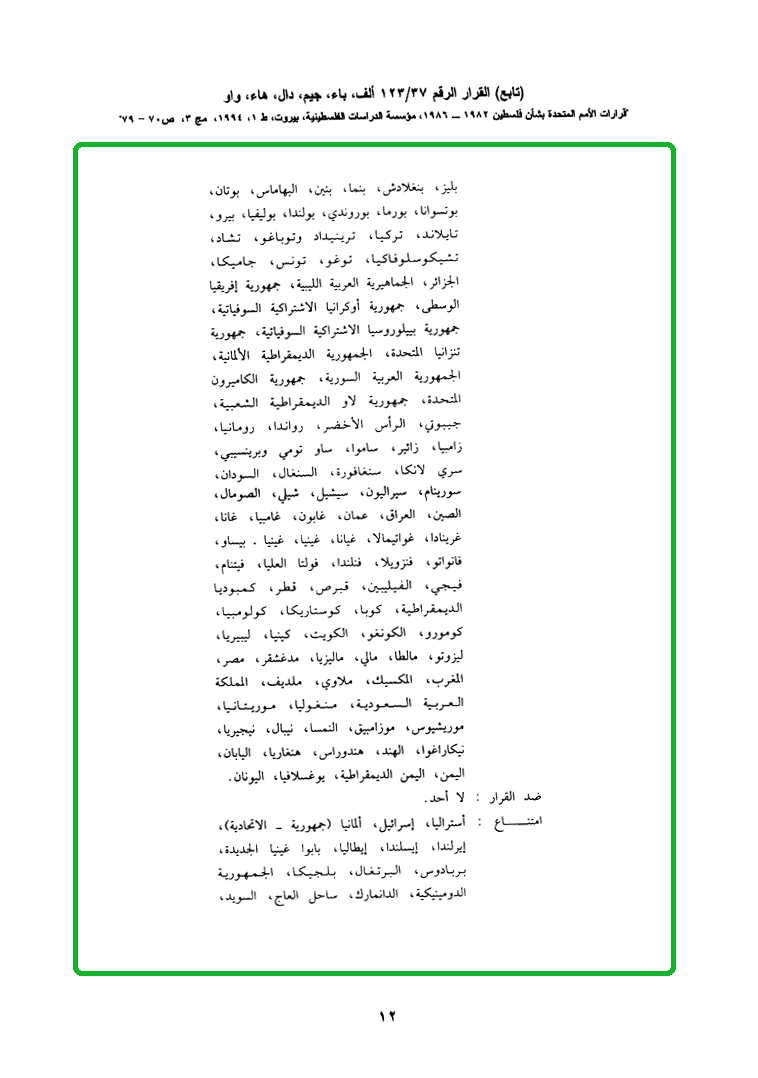 (تابع) القرار الرقم ١٢٣/٣٧ ألف، باء، جيم، دال، هاء، واو
"قرارات الأمم المتحدة بشأن فلسطين ١٩٨٢ ـ ١٩٨٦، مؤسسة الدراسات الفلسطينية، بيروت، ط ١، ١٩٩٤، مج ٣، ص٧٠ - ٧٩"
بليز، بنغلادش، بنما، بنين، البهاماس، بوتان،
بوتسوانا، بورما، بوروندي، بولندا، بوليفيا، بيرو،
تايلاند، تركيا، ترينيداد وتوباغو، تشاد،
تشيكوسلوفاكيا، توغو، تونس، جاميكا،
الجزائر، الجماهيرية العربية الليبية، جمهورية إفريقيا
الوسطى، جمهورية أوكرانيا الاشتراكية السوفياتية،
جمهورية بييلوروسيا الاشتراكية السوفياتية، جمهورية
تنزانيا المتحدة، الجمهورية الديمقراطية الألمانية،
الجمهورية العربية السورية، جمهورية الكاميرون
المتحدة، جمهورية لاو الديمقراطية الشعبية،
جيبوتي، الرأس الأخضر، رواندا، رومانيا،
زامبيا، زائير، ساموا، ساو تومي وبرينسيبي،
سري لانكا، سنغافورة، السنغال، السودان،
سورينام، سيراليون، سيشيل، شيلي، الصومال،
الصين، العراق، عمان، غابون، غامبيا، غانا،
غرينادا، غواتيمالا، غيانا، غينيا، غينيا ـ بيساو،
فانواتو، فنزويلا، فنلندا، فولتا العليا، فيتنام،
فيجي، الفيليبين، قبرص، قطر، كمبوديا
الديمقراطية، كوبا، كوستاريكا، كولومبيا،
كومورو، الكونغو، الكويت، كينيا، ليبيريا،
ليزوتو، مالطا، مالي، ماليزيا، مدغشقر، مصر،
المغرب، المكسيك، ملاوي، ملديف، المملكة
العربية السعودية، منغوليا، موريتانيا،
موريشيوس، موزامبيق، النمسا، نيبال، نيجيريا،
نيكاراغوا، الهند، هندوراس، هنغاريا، اليابان،
اليمن، اليمن الديمقراطية، يوغسلافيا، اليونان.
ضد القرار : لا أحد.
امتنـــــاع : أستراليا، إسرائيل، ألمانيا (جمهورية ـ الاتحادية)،
إيرلندا، إيسلندا، إيطاليا، بابوا غينيا الجديدة،
بربادوس، البرتغال، بلجيكا، الجمهورية
الدومينيكية، الدانمارك، ساحل العاج، السويد،
١٢